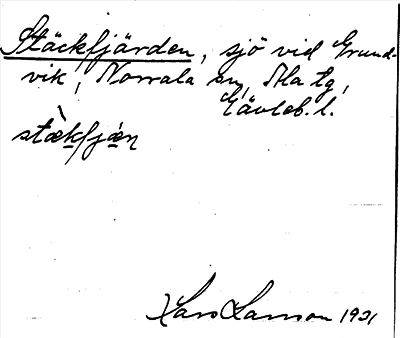 Stäckfjärden, sjö vid Grund-
vik, Norrala sn, Ala tg,
Gävleb. l.
stækfjæn
Lars Larsson 1931